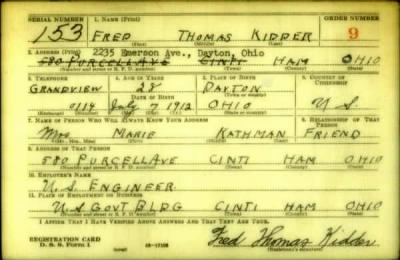 SERIAL NUMBER 1. NAME (Print) ORDER NUMBER
153 FRED THOMAS KIDDER 9
(First) (Middle) (Last)
2. ADDRESS (Print) 2235 Emerson Ave., Dayton, Ohio
580 PURCELL AVE CINTI HAM OHIO
(Number and street or R. F. D. number) (Town) (County) (State)
3. TELEPHONE 4. AGE IN YEARS 5. PLACE OF BIRTH 6. COUNTRY OF CITIZENSHIP
GRANDVIEW 28 DAYTON
DATE OF BIRTH (Town or county)
0114 July 7 1912 OHIO U S
(Mo.) (Day) (Yr.) (State or country)
7. NAME OF PERSON WHO WILL ALWAYS KNOW YOUR ADDRESS 8. RELATIONSHIP OF THAT PERSON
Mrs MARIE KATHMAN FRIEND
(Mr., Mrs., Miss) (First) (Middle) (Last)
9. ADDRESS OF THAT PERSON
580 PURCELL AVE CINTI HAM OHIO
(Number and street or R. F. D. number) (Town) (County) (State)
10. EMPLOYER'S NAME
U. S. ENGINEER
11. PLACE OF EMPLOYMENT OR BUSINESS
U S GOVT BLDG CINTI HAM OHIO
(Number and street or R. F. D. number) (Town) (County) (State)
I AFFIRM THAT I HAVE VERIFIED ABOVE ANSWERS AND THAT THEY ARE TRUE.
REGISTRATION CARD
D. S. S. Form 1 Fred Thomas Kidder
(Registrant's signature)